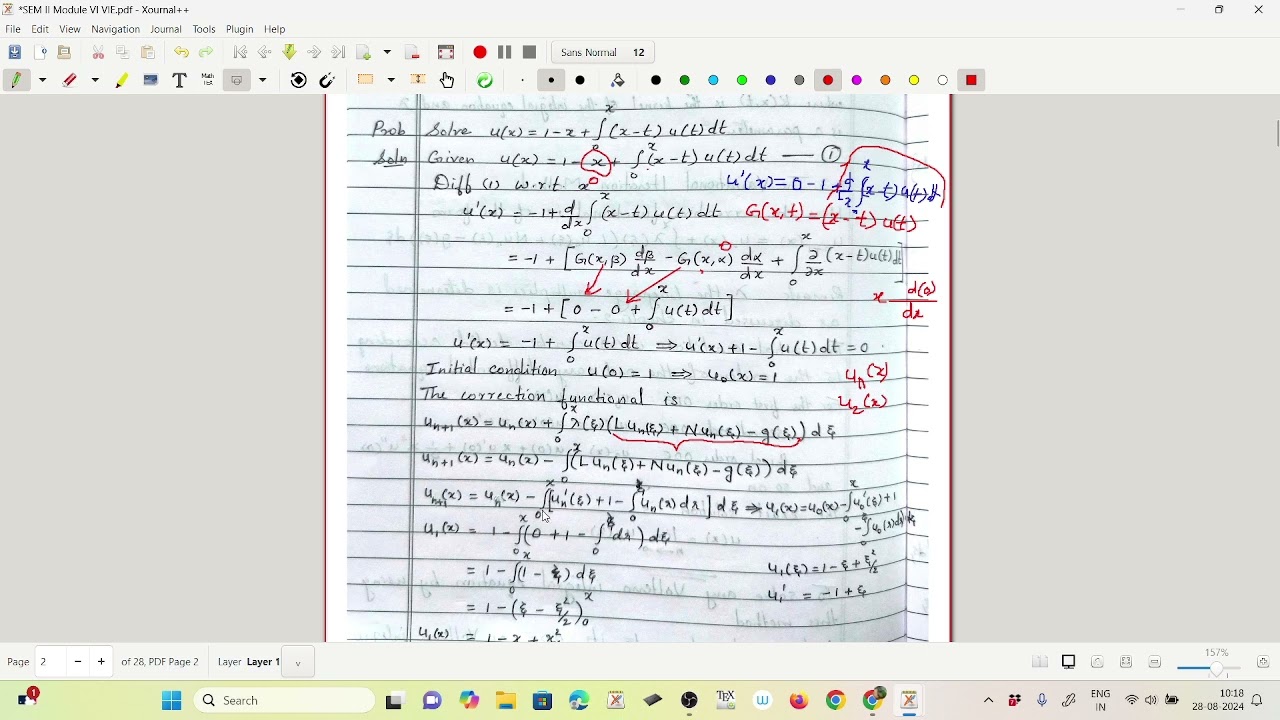 *SEM II Module VI VIE.pdf - Xournal++
File Edit View Navigation Journal Tools Plugin Help
Sans Normal 12
Prob Solve u(x) = 1 - x + ∫₀ˣ (x-t) u(t) dt
Soln Given u(x) = 1 - x + ∫₀ˣ (x-t) u(t) dt — ①
Diff (1) w.r.t. x
u'(x) = 0 - 1 + d/dx ∫ˣ (x-t) u(t) dt
u'(x) = -1 + d/dx ∫₀ˣ (x-t) u(t) dt G(x,t) = (x-t) u(t)
= -1 + [G(x,β) dβ/dx - G(x,α) dα/dx + ∫₀ˣ ∂/∂x (x-t)u(t)dt]
0
= -1 + [0 - 0 + ∫₀ˣ u(t) dt]
x d(0)/dx
u'(x) = -1 + ∫₀ˣ u(t) dt ⇒ u'(x) + 1 - ∫₀ˣ u(t) dt = 0.
Initial condition u(0) = 1 ⇒ u₀(x) = 1
uₙ(x)
The correction functional is
u₂(x)
uₙ₊₁(x) = uₙ(x) + ∫₀ˣ λ(ξ)(Luₙ(ξ) + Nuₙ(ξ) - g(ξ)) dξ
uₙ₊₁(x) = uₙ(x) - ∫₀ˣ (Luₙ(ξ) + Nuₙ(ξ) - g(ξ)) dξ
uₙ₊₁(x) = uₙ(x) - ∫₀ˣ [uₙ'(ξ) + 1 - ∫₀^ξ uₙ(r) dr] dξ ⇒ u₁(x) = u₀(x) - ∫₀ˣ u₀'(ξ) + 1
- ∫₀^ξ u₀(r) dr dξ
u₁(x) = 1 - ∫₀ˣ (0 + 1 - ∫₀^ξ dr) dξ
= 1 - ∫₀ˣ (1 - ξ) dξ u₁(ξ) = 1 - ξ + ξ²/2
u₁' = -1 + ξ
= 1 - (ξ - ξ²/2)₀ˣ
u₁(x) = 1 - x + x²
Page 2 - + of 28, PDF Page 2 Layer Layer 1 157%
1 Search ENG IN 10:18 28-08-2024